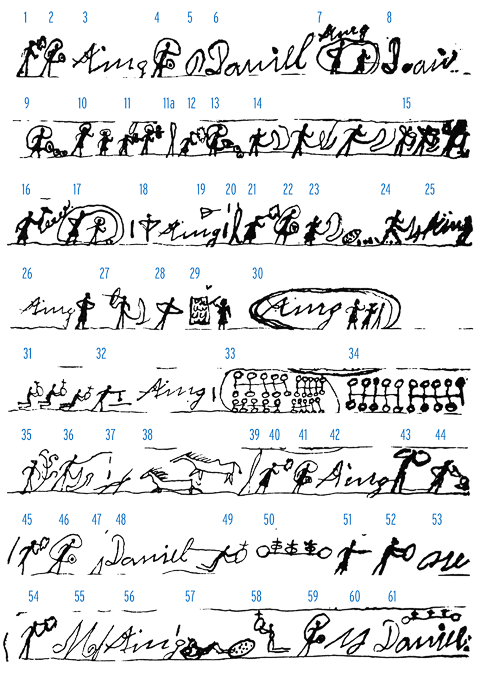 1 2 3 4 5 6 7 8
Aing Daniell Aing
9 10 11 11a 12 13 14 15
16 17 18 19 20 21 22 23 24 25
Aing Aing
26 27 28 29 30
Aing Aing
31 32 33 34
Aing
35 36 37 38 39 40 41 42 43 44
Aing
45 46 47 48 49 50 51 52 53
Daniell
54 55 56 57 58 59 60 61
M Aing Daniell